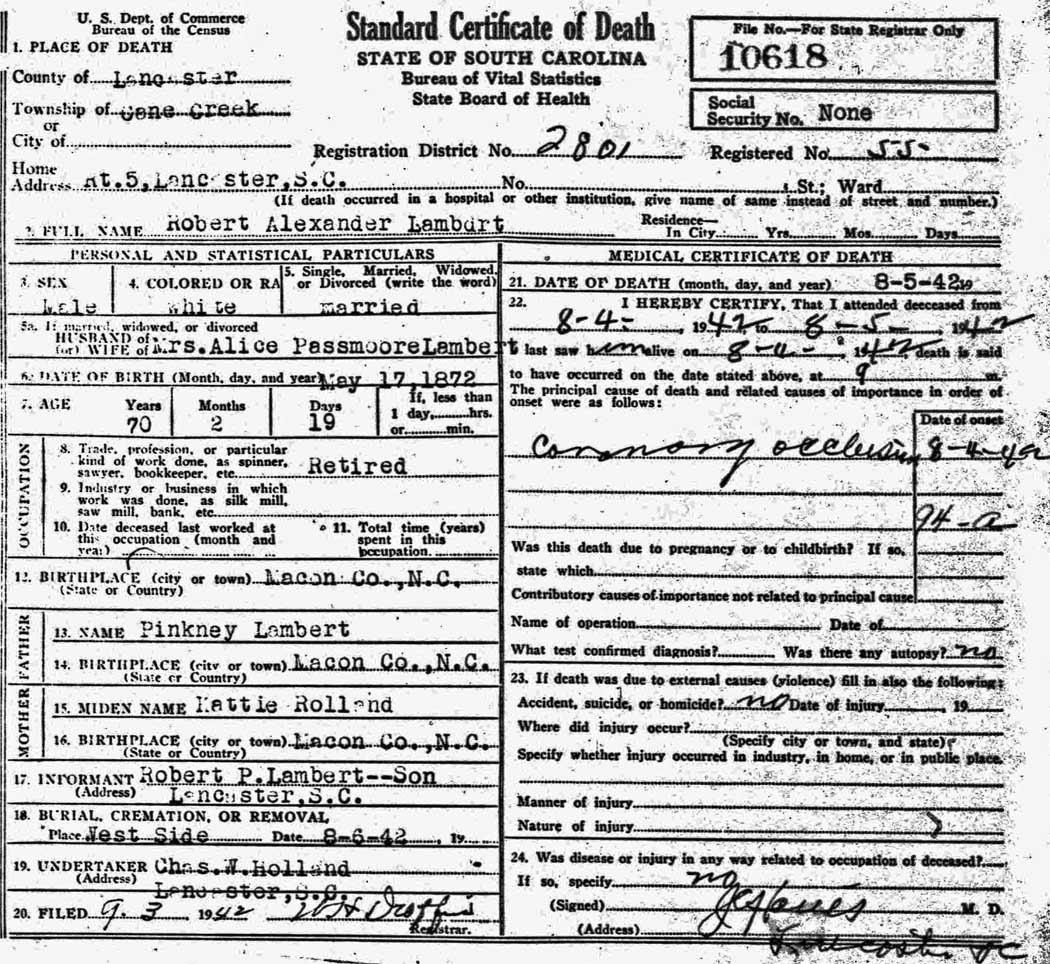 U. S. Dept. of Commerce
Bureau of the Census
Standard Certificate of Death
STATE OF SOUTH CAROLINA
Bureau of Vital Statistics
State Board of Health
File No.—For State Registrar Only
10618
Social Security No. None
1. PLACE OF DEATH
County of Lancaster
Township of Cane Creek
or
City of
Registration District No. 2801
Registered No. 55
Home Address Rt.5, Lancaster, S.C. No. St.; Ward
(If death occurred in a hospital or other institution, give name of same instead of street and number.)
2. FULL NAME Robert Alexander Lambart
Residence— In City Yrs. Mos. Days
PERSONAL AND STATISTICAL PARTICULARS
3. SEX Male
4. COLORED OR RA White
5. Single, Married, Widowed, or Divorced (write the word) Married
5a. If married, widowed, or divorced
HUSBAND of
(or) WIFE of Mrs.Alice Passmoore Lambert
6. DATE OF BIRTH (Month, day, and year) May 17, 1872
7. AGE Years 70 Months 2 Days 19 If, less than 1 day, hrs. or min.
OCCUPATION
8. Trade, profession, or particular
kind of work done, as spinner,
sawyer, bookkeeper, etc. Retired
9. Industry or business in which
work was done, as silk mill,
saw mill, bank, etc.
10. Date deceased last worked at
this occupation (month and
year)
11. Total time (years)
spent in this
occupation.
12. BIRTHPLACE (city or town) Macon Co., N.C.
(State or Country)
FATHER
13. NAME Pinkney Lambert
14. BIRTHPLACE (city or town) Macon Co., N.C.
(State or Country)
MOTHER
15. MIDEN NAME Hattie Rolland
16. BIRTHPLACE (city or town) Macon Co., N.C.
(State or Country)
17. INFORMANT Robert P.Lambert--Son
(Address) Lancaster, S.C.
18. BURIAL, CREMATION, OR REMOVAL
Place West Side Date 8-6-42, 19
19. UNDERTAKER Chas.W.Holland
(Address) Lancaster, S.C.
20. FILED 9. 3 1942
Registrar.
MEDICAL CERTIFICATE OF DEATH
21. DATE OF DEATH (month, day, and year) 8-5-42 19
22. I HEREBY CERTIFY, That I attended deceased from
8-4-, 1942 to 8-5-, 1942
I last saw him alive on 8-4-, 1942 death is said
to have occurred on the date stated above, at 9 m.
The principal cause of death and related causes of importance in order of
onset were as follows:
Date of onset
Coronary occlusion 8-4-42
94-a
Was this death due to pregnancy or to childbirth? If so,
state which
Contributory causes of importance not related to principal cause
Name of operation Date of
What test confirmed diagnosis? Was there any autopsy? no
23. If death was due to external causes (violence) fill in also the following:
Accident, suicide, or homicide? no Date of injury 19
Where did injury occur?
(Specify city or town, and state)
Specify whether injury occurred in industry, in home, or in public place.
Manner of injury
Nature of injury
24. Was disease or injury in any way related to occupation of deceased?
If so, specify no
(Signed) M. D.
(Address) Lancaster SC